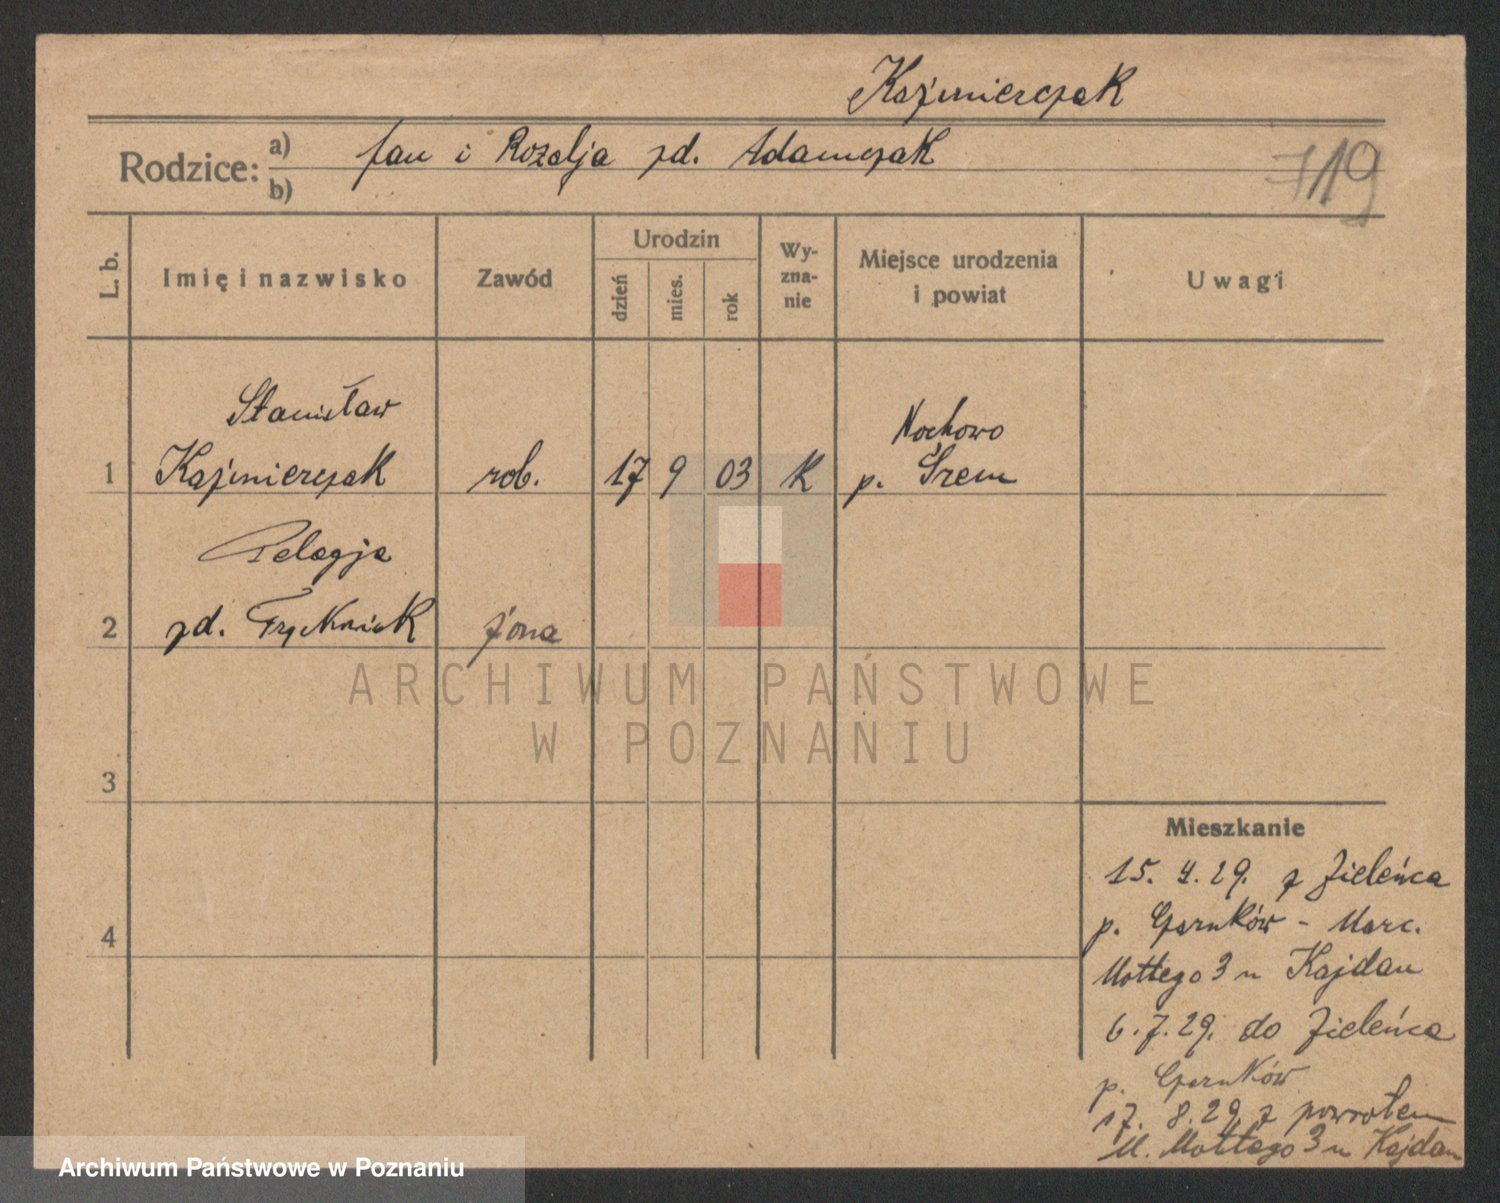 Kaźmierczak
Rodzice: a) Jan i Rozalja zd. Adamczak
b)
719
L. b.
Imię i nazwisko
Zawód
Urodzin
dzień
mies.
rok
Wy-
zna-
nie
Miejsce urodzenia
i powiat
Uwagi
Stanisław
1 Kaźmierczak rob. 17 9 03 k
Nochowo
p. Śrem
Pelagja
2 zd. żona
3
4
Mieszkanie
15. 4. 29. z Zieleńca
p. Czarnków - Marc.
Mottego 3 u Kajdan
6. 7. 29. do Zieleńca
p. Czarnków
17. 8. 29 z powrotem
M. Mottego 3 u Kajdan
ARCHIWUM PAŃSTWOWE
W POZNANIU
Archiwum Państwowe w Poznaniu